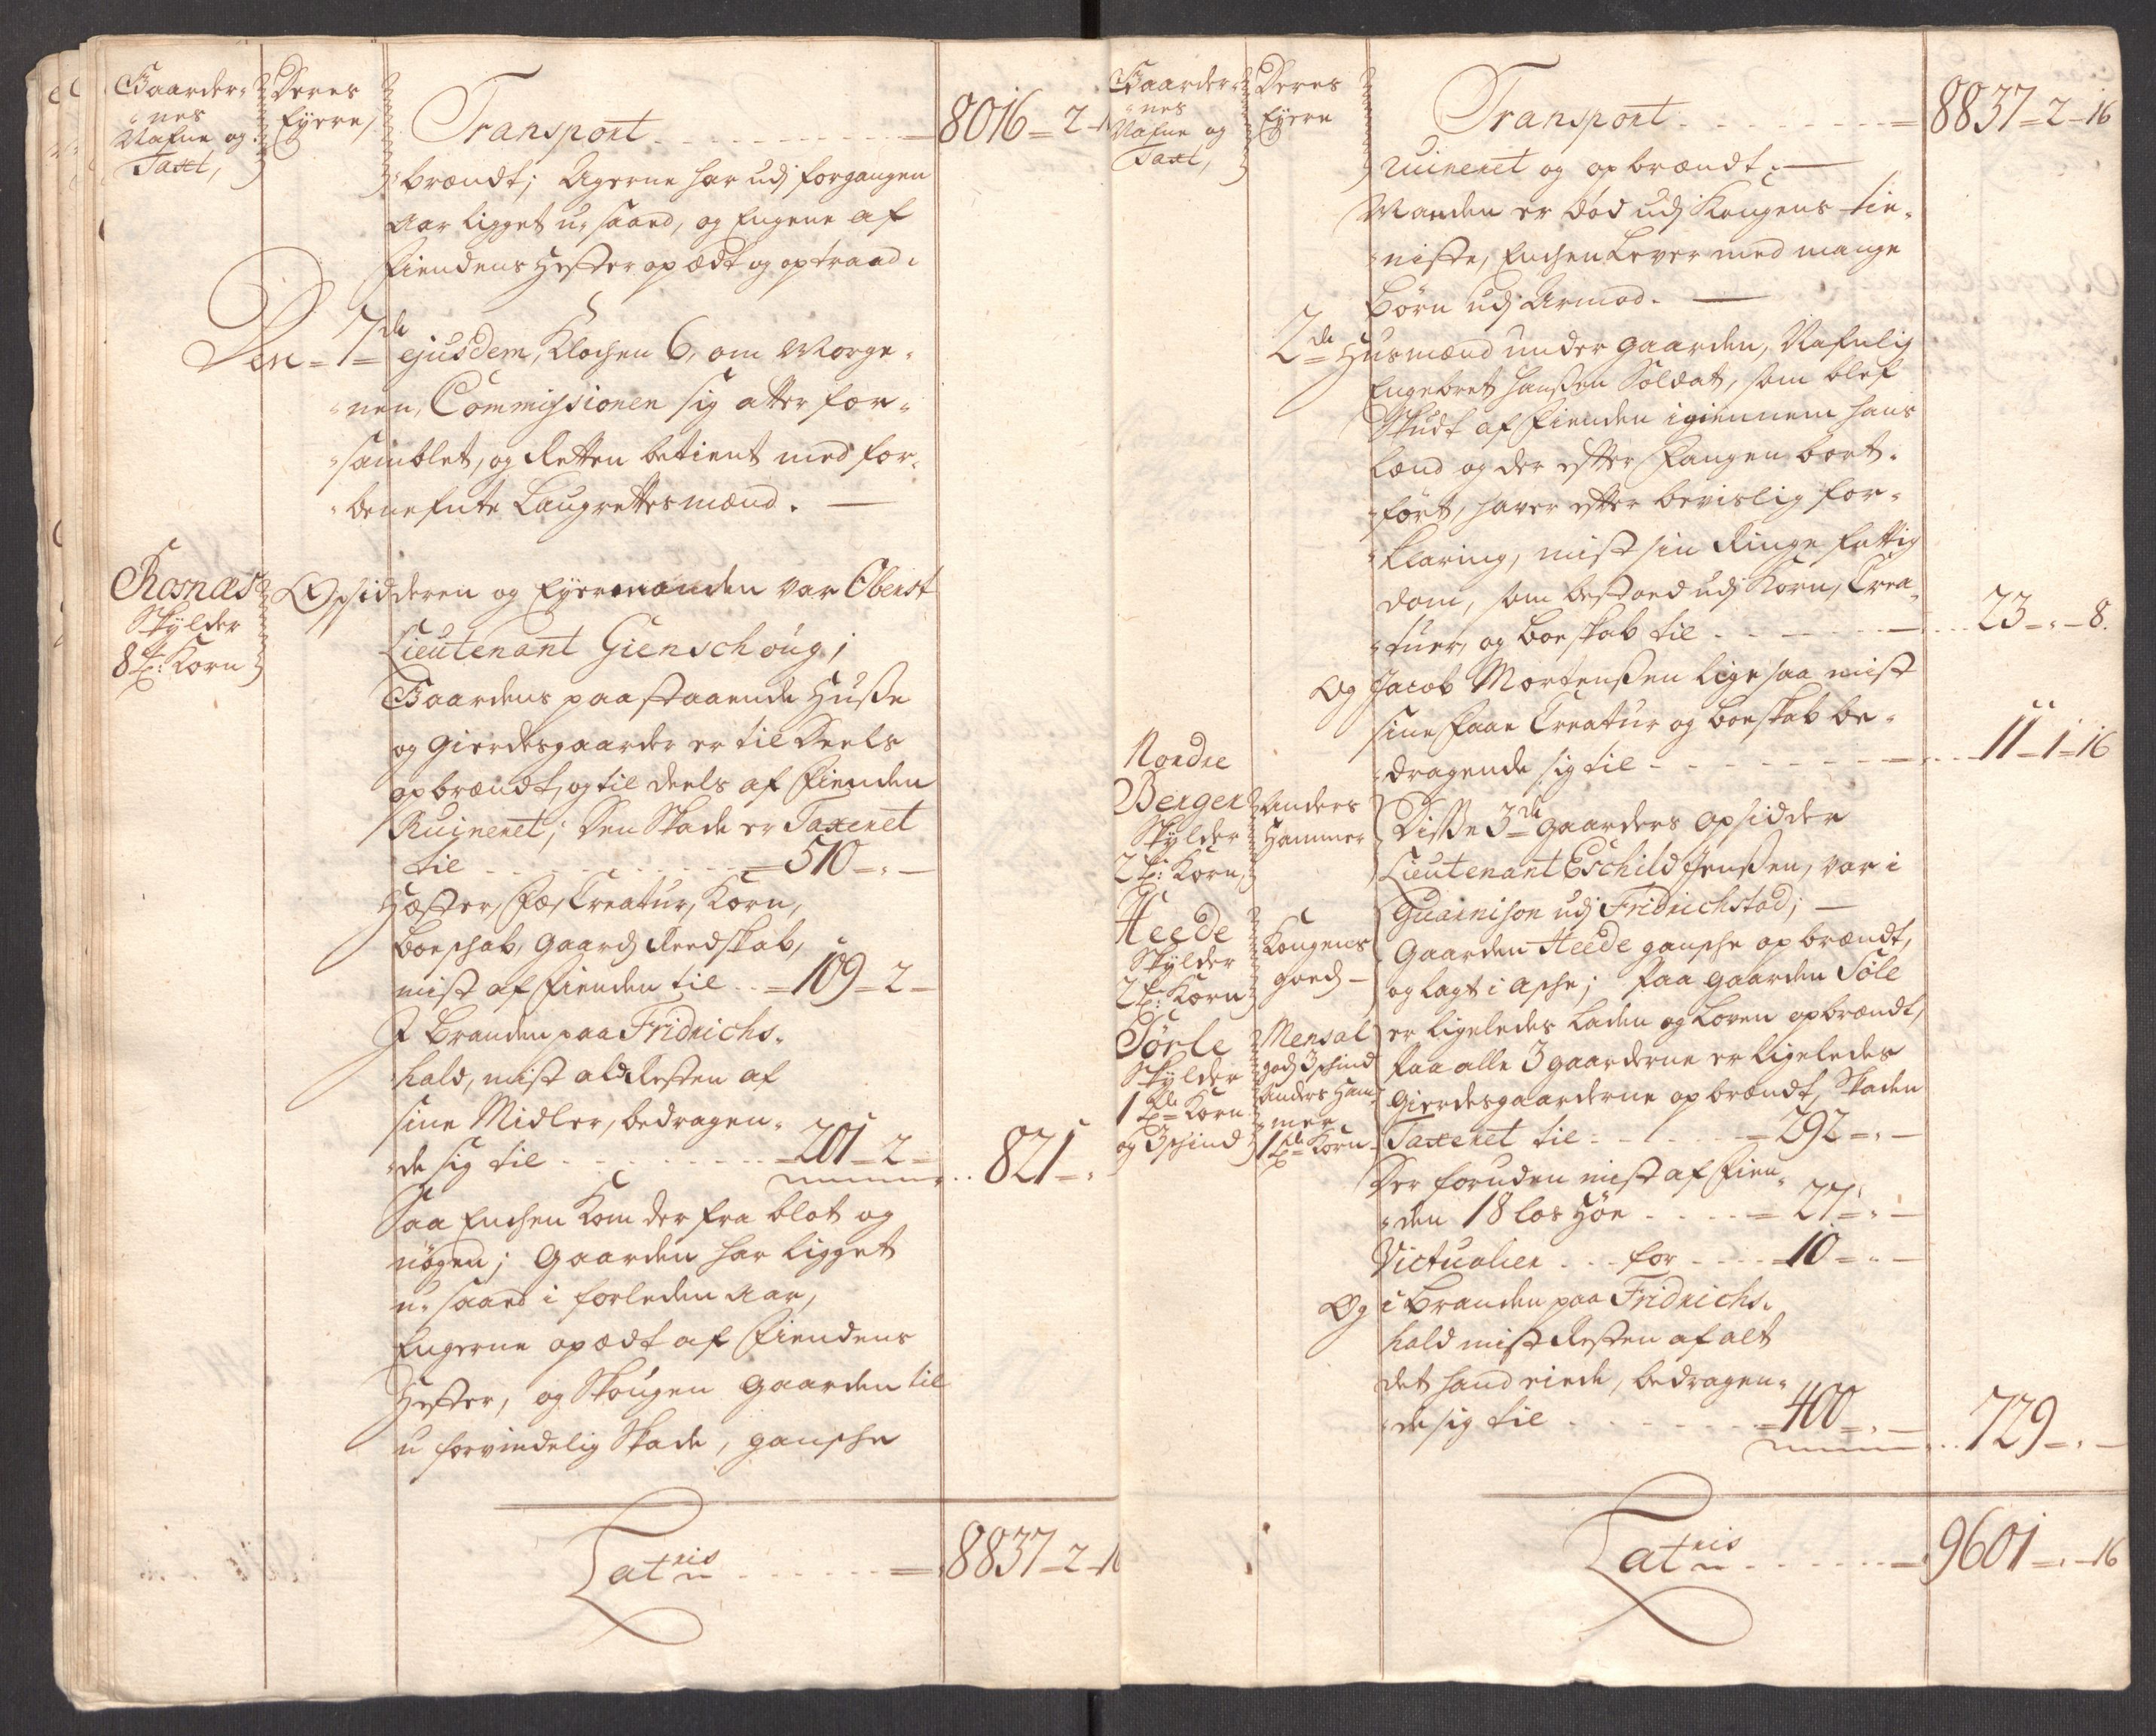 Gaarder¬
nes
Nafne og
Taxt,
Deres
Eyere,
Transport - - - - - - - = 8016 = 2 -
brændt; Agerne har udj forgangen
Aar ligget u-saaed, og Engene af
Fiendens Hester opædt og optraad.
Den = 7de ejusdem, Klochen 6, om Morge¬
nen, Commissionen sig atter for¬
samblet, og Retten betient med for¬
benefnte Laugrettesmænd. —
Rosnæs
Skylder
8 £: Korn
Opsidderen og Eyermanden var Oberst
Lieutenant Gienschoug;
Gaardens paastaaende Husse
og Gierdesgaarder er til Deels
opbrændt, og til deels af Fienden
Ruineret; Den Skade er Taxeret
til - - - - - - = 510 = " -
Hester, Fæ, Creatur, Korn,
Boeschab, Gaards Reedskab,
mist af Fienden til - - = 109 = 2 -
I Branden paa Fridrichs¬
hald, mist ald Resten af
sine Midler, bedragen¬
de sig til - - - - - - = 201 = 2 - - - 821 = "
Saa Enchen kom der fra blot og
nögen; Gaarden har ligget
u-saaed i forleden Aar,
Engerne opædt af Fiendens
Hester, og Skougen Gaarden til
u forvindelig Skade, gansche
Latris - - - - - = 8837 = 2 - 16
Gaarder¬
nes
Nafne og
Taxt,
Deres
Eyere
Transport - - - - - - = 8837 = 2 - 16
Ruineret og opbrændt; —
Manden er död udj Kongens tie¬
niste, Enchen Lever med mange
Börn udj Armod. —
2de Husmænd under Gaarden, Nafnlig
Engebret Hanssen Soldat, som blef
Skudt af Fienden igiennem hans
Lænd og der efter Fangen bort¬
fört, haver efter bevislig for¬
klaring, mist sin Ringe fattig
dom, som bestoed udj Korn, Crea¬
tuer, og Boeskab til - - - - - - - 23 = " - 8.
Og Jacob Mortenssen lige saa mist
sine Faae Creatur og Boeskab be¬
dragende sig til - - - - - - - - 11 - 1 - 16
Nordre
Berger
Skylder
2 £: Korn,
Anders
Hammer
Heede
Skylder
2 £: Korn
Kongens
goeds -
Sörle
Skylder
1 £de Korn
og 3 schind
Mensal
gods 3 schind
Anders Ham¬
mer
1 £de Korn -
Disse 3de Gaarders Opsidder
Lieutenant Eschild Jenssen, var i
Guarnison udj Fridrichstad; —
Gaarden Heede gansche opbrændt,
og lagt i Asche; Paa Gaarden Söle
er ligeledes Laden og Loven opbrændt,
Paa alle 3 gaarderne er ligeledes
Gierdesgaarderne opbrændt, Skaden
Taxeret til - - - - - = 292 = " -
Der foruden mist af Fien¬
den 18 las Höe - - - - = 27 = " -
Victualier - - for - - - - = 10 = " -
Og i Branden paa Fridrichs¬
hald mist Resten af alt
det hand eiede, bedragen¬
de sig til - - - - - - = 400 = " - - - 729 = " -
Latris - - - - - - = 9601 = " - 16